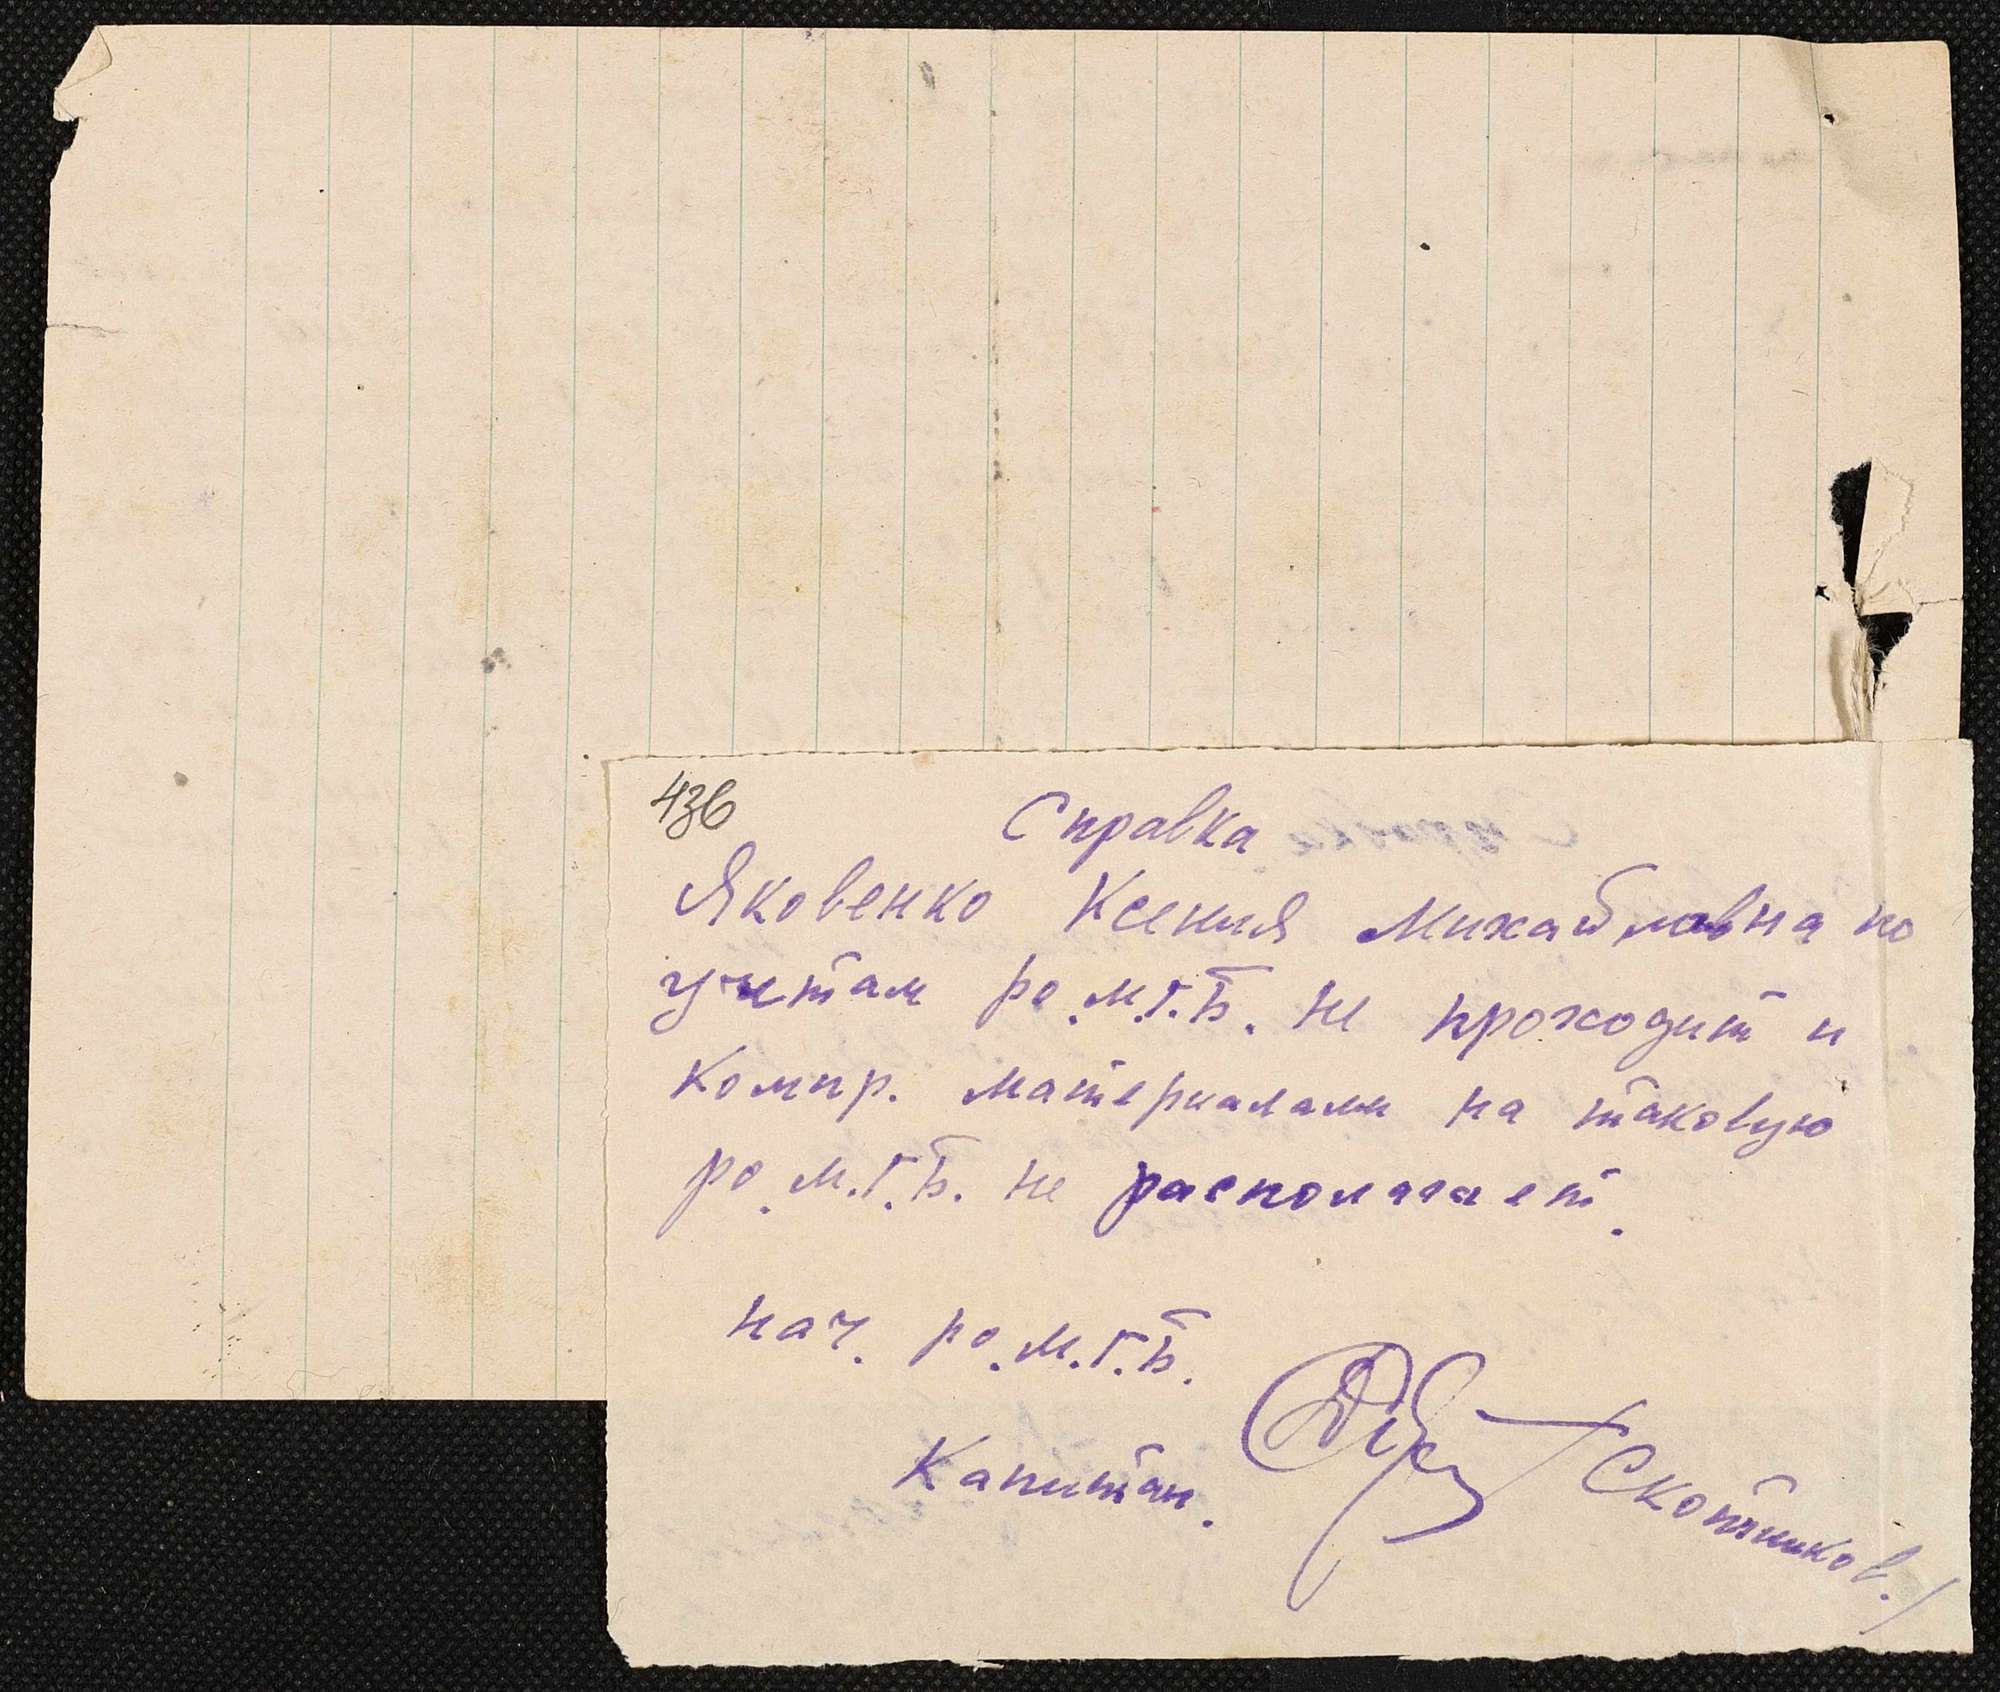 436
Справка
Яковенко Ксения Михайловна по
учетам ро. М.Г.Б. не проходит и
компр. материалами на таковую
ро. М.Г.Б. не располагает.
нач. ро. М.Г.Б.
Капитан.
/Скотников./